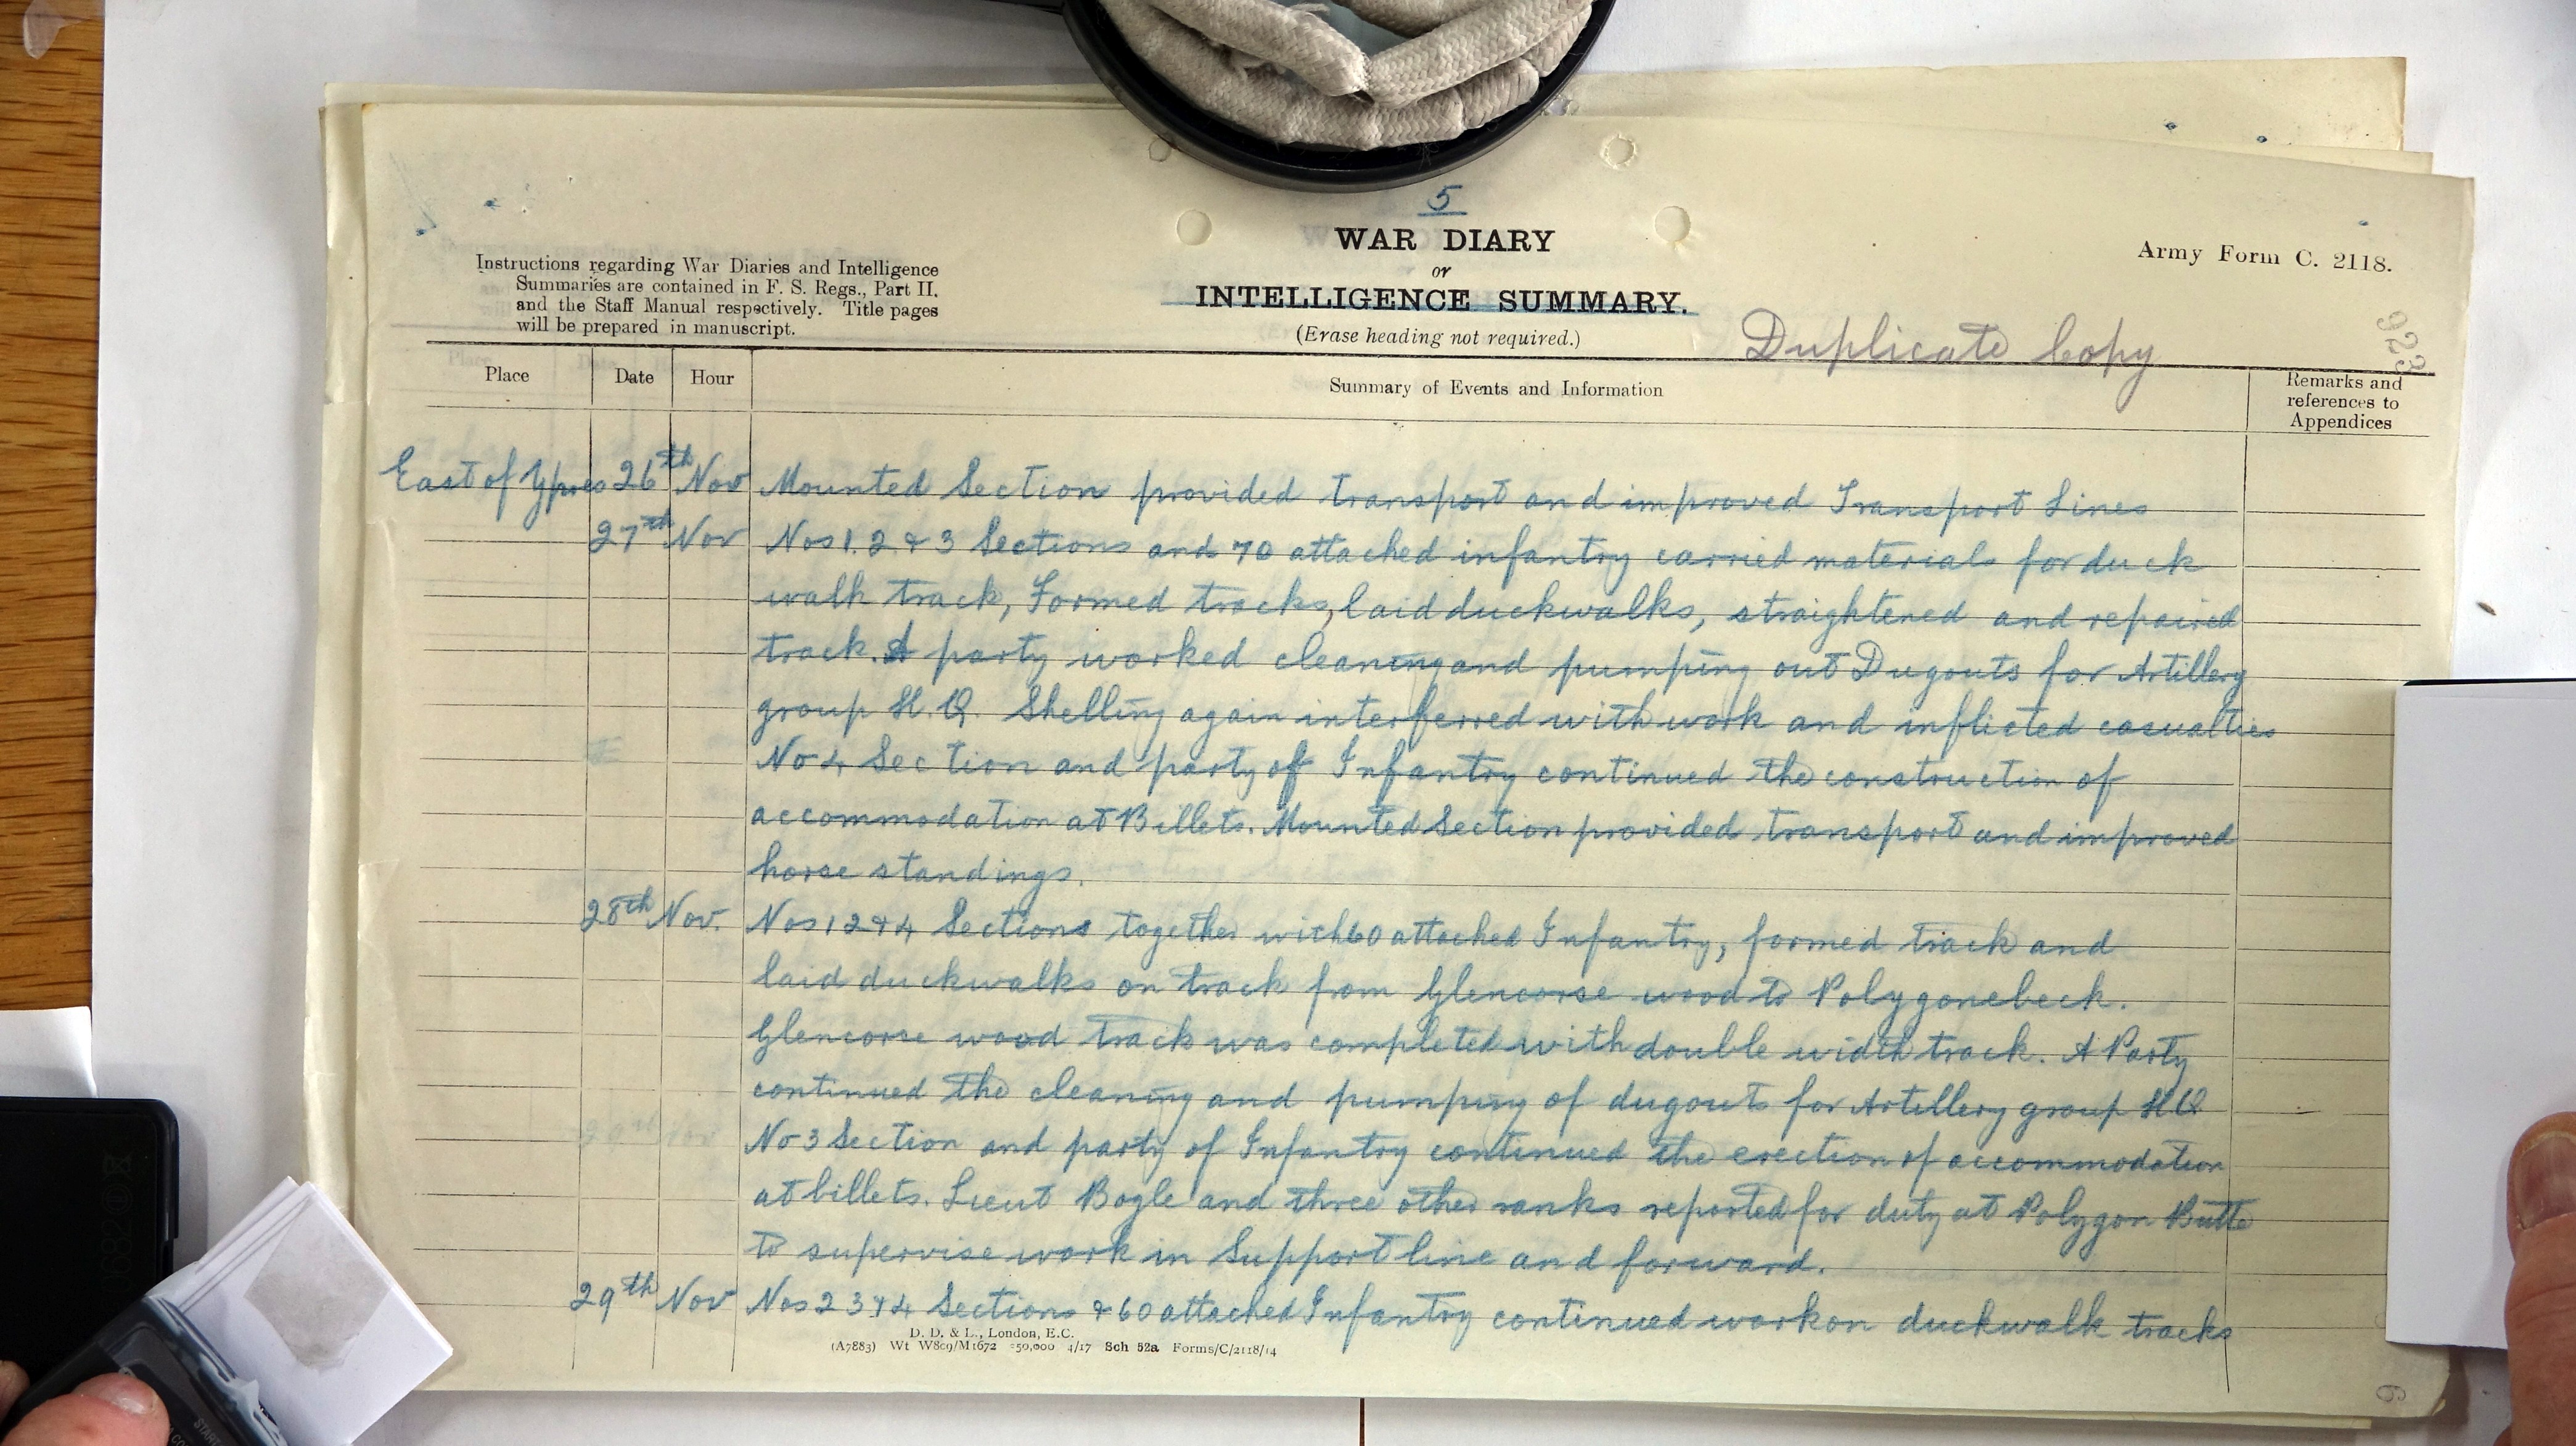 5
WAR DIARY
or
INTELLIGENCE SUMMARY.
(Erase heading not required.)
Army Form C. 2118.
Instructions regarding War Diaries and Intelligence
Summaries are contained in F. S. Regs., Part II.
and the Staff Manual respectively. Title pages
will be prepared in manuscript.
Duplicate Copy
923
Place Date Hour Summary of Events and Information Remarks and
references to
Appendices
East of Ypres 26th Nov Mounted Section provided transport and improved Transport Lines
27th Nov Nos 1. 2 & 3 Sections and 70 attached infantry carried materials for duck
walk track, Formed tracks, laid duckwalks, straightened and repaired
track. A party worked cleaning and pumping out Dugouts for Artillery
group H.Q. Shelling again interferred with work and inflicted casualties
No 4 Section and party of Infantry continued the construction of
accommodation at Billets. Mounted Section provided transport and improved
horse standings.
28th Nov. Nos 1 2 & 4 Sections together with 60 attached Infantry, formed track and
laid duckwalks on track from Glencorse wood to Polygonebeck.
Glencorse wood track was completed with double width track. A Party
continued the cleaning and pumping of dugouts for Artillery group HQ
No 3 Section and party of Infantry continued the erection of accommodation
at billets. Lieut Bogle and three other ranks reported for duty at Polygon Butte
to supervise work in Support line and forward.
29th Nov Nos 2 3 & 4 Sections & 60 attached Infantry continued work on duckwalk tracks
D. D. & L., London, E.C.
(A7883) Wt W809/M1672 350,000 4/17 Sch 52a Forms/C/2118/14